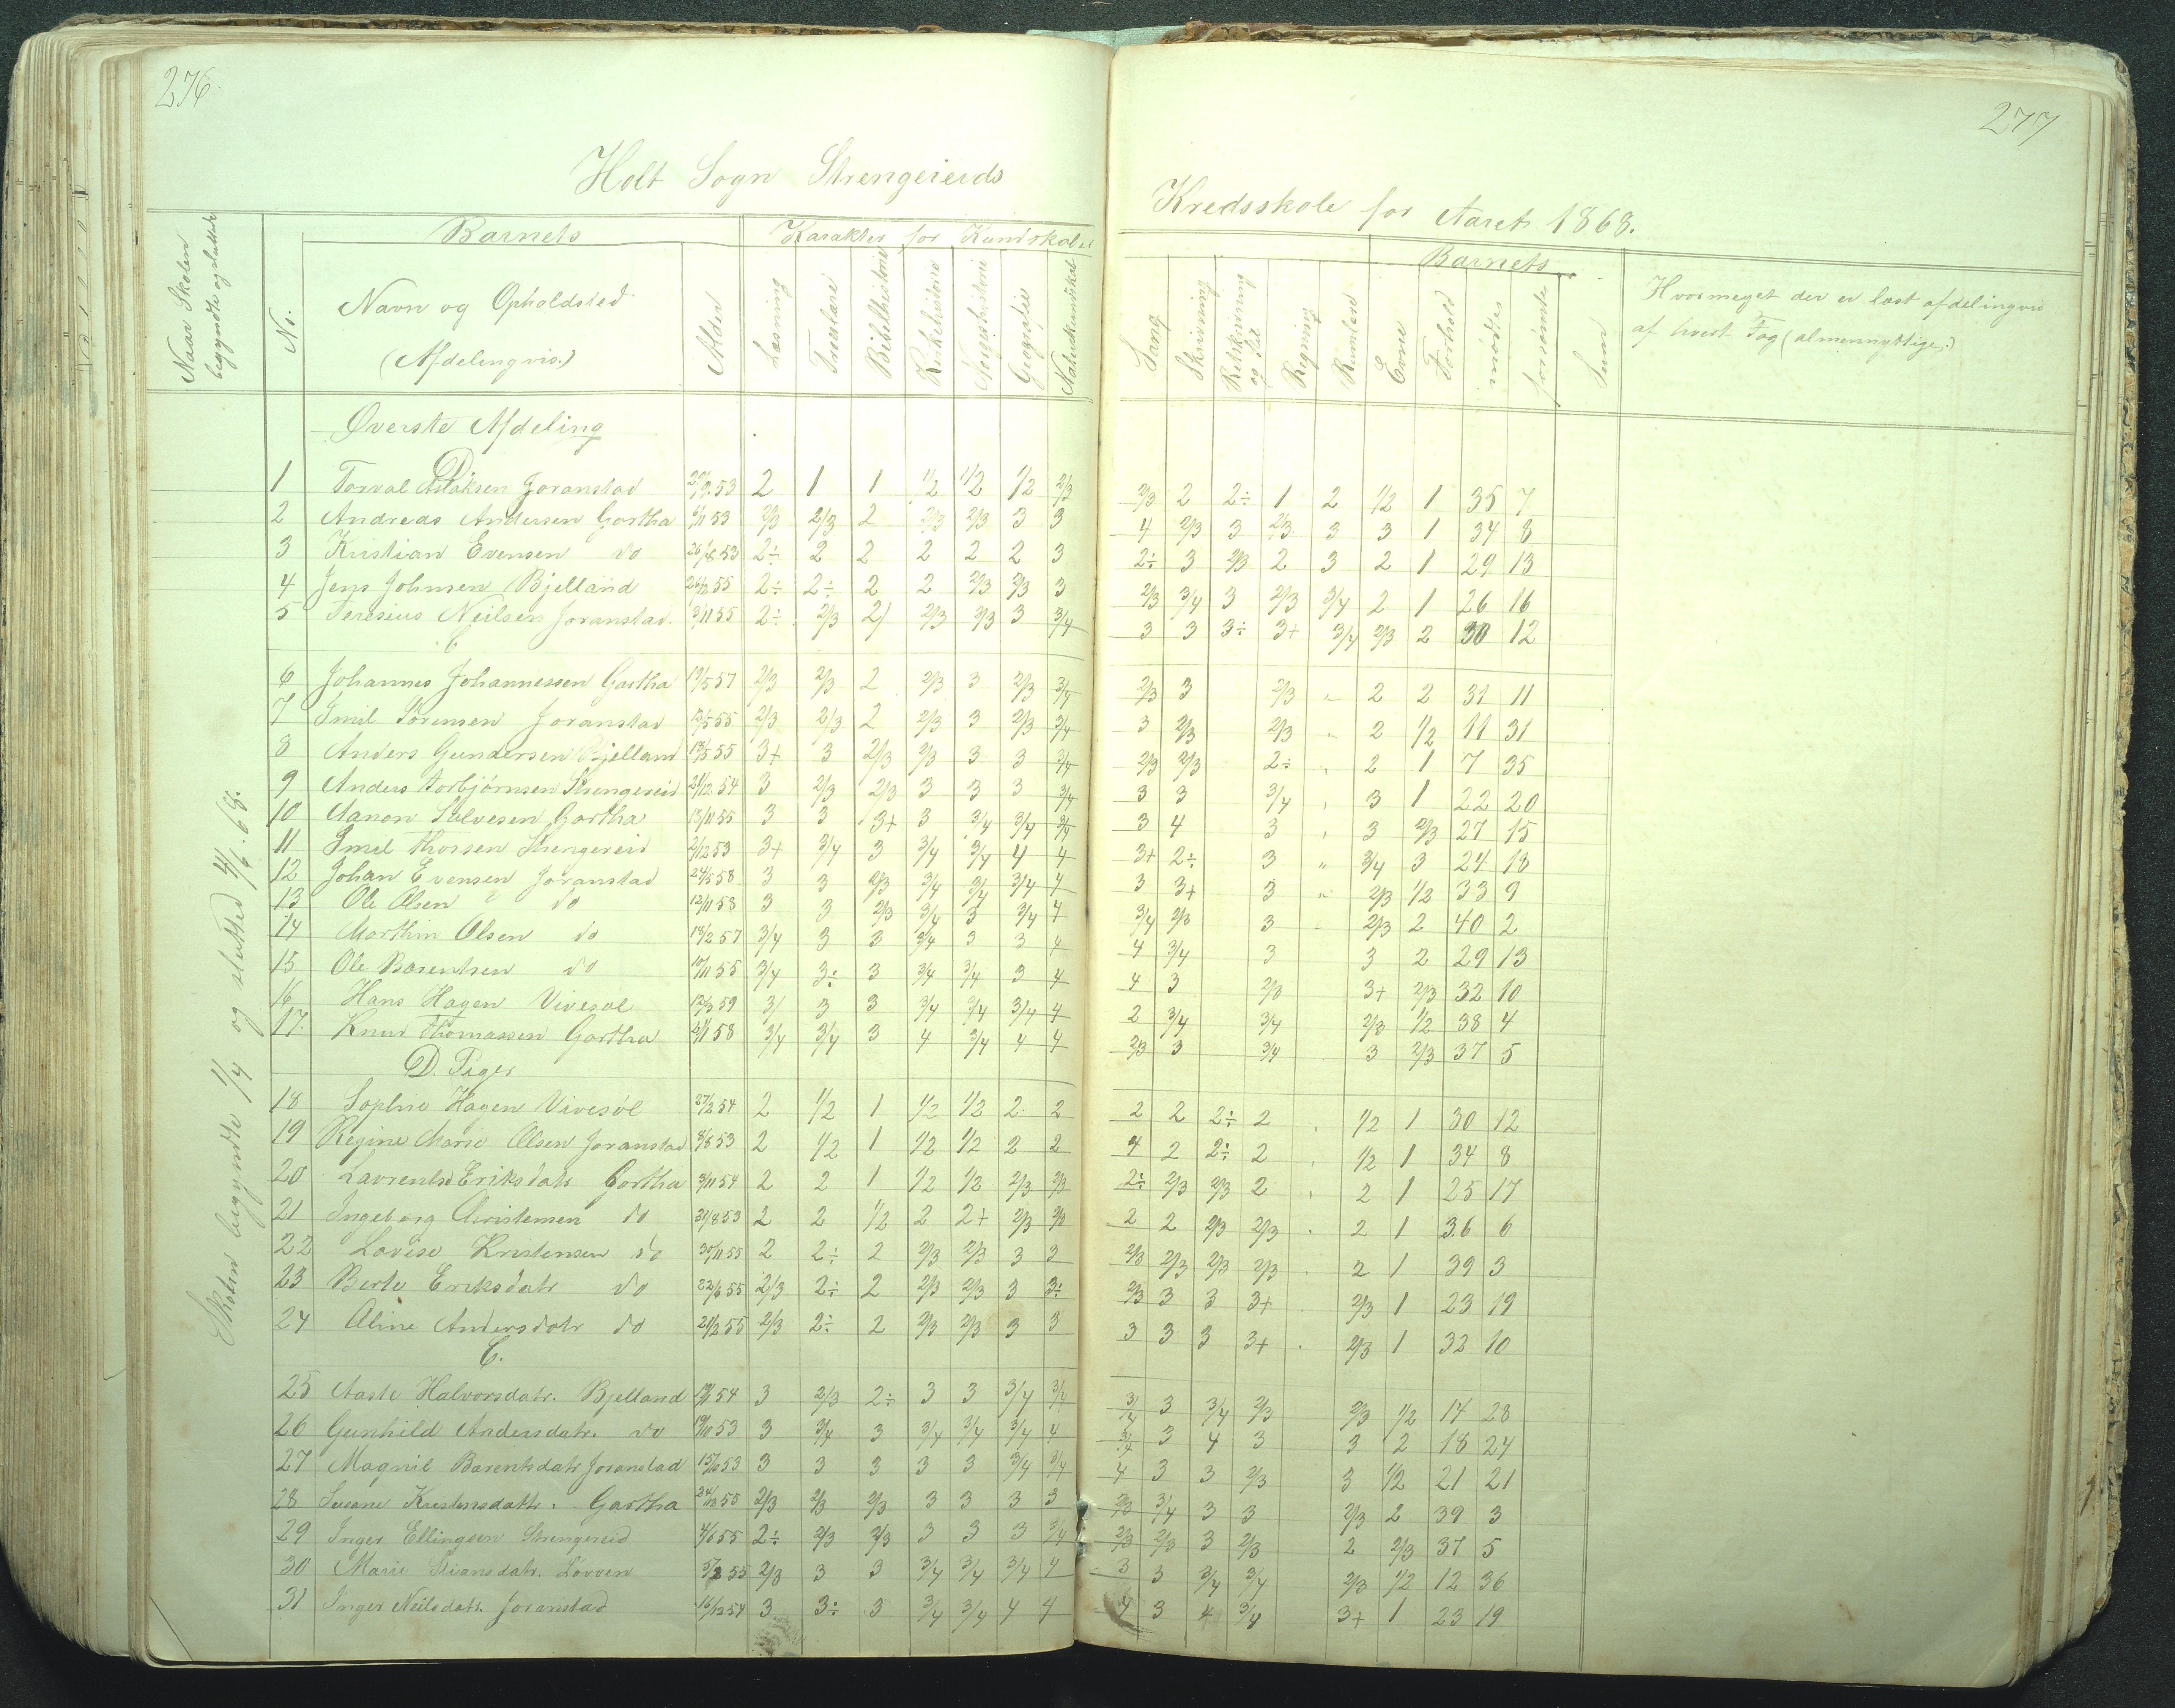 276
277
Holt Sogn Strengereids
Kredsskole for Aaret 1868.
Naar Skolen begyndte og sluttede
No.
Barnets
Navn og Opholdsted
(Afdelingvis.)
Alder
Karakter for Kundskaber
Læsning
Troeslære
Bibelhistorie
Kirkehistorie
Norgeshistorie
Geografie
Naturkundskab
Sang
Skrivning
Retskrivning og Stil
Regning
Rumlære
Barnets
Evne
Forhold
mødte
forsømte
Sum
Hvormeget der er læst afdelingvis
af hvert Fag (almennyttige.)
Skolen begyndte 1/4 og sluttede 4/6. 68.
Øverste Afdeling
D
1 Torval Aslaksen Joranstad 53 2 1 1 1/2 1/2 1/2 2/3 2/3 2 2÷ 1 2 1/2 1 35 7
2 Andreas Andersen Gartha 6/11 53 2/3 2/3 2 2/3 2/3 3 3 4 2/3 3 2/3 3 3 1 34 8
3 Kristian Evensen do 26/8 53 2÷ 2 2 2 2 2 3 2÷ 3 2/3 2 3 2 1 29 13
4 Jens Johnsen Bjelland 55 2÷ 2÷ 2 2 2/3 2/3 3 2/3 3/4 3 2/3 3/4 2 1 26 16
5 Teresius Neilsen Joranstad 55 2÷ 2/3 2 2/3 2/3 3 3/4 3 3 3÷ 3+ 3/4 2/3 2 30 12
C
6 Johannes Johannessen Gartha 19/5 57 2/3 2/3 2 2/3 3 2/3 3/4 2/3 3 2/3 " 2 2 31 11
7 Emil Sørensen Joranstad 55 2/3 2/3 2 2/3 3 2/3 3/4 3 2/3 2/3 " 2 1/2 11 31
8 Anders Gundersen Bjelland 55 3+ 3 2/3 2/3 3 3 3/4 2/3 2/3 2÷ " 2 1 7 35
9 Anders Torbjørnsen Strengereid 21/12 54 3 2/3 2/3 3 3 3 3/4 3 3 3/4 " 3 1 22 20
10 Aanon Salvesen Gartha 13/11 55 3 3 3+ 3 3/4 3/4 3/4 3 4 3 " 3 2/3 27 15
11 Emil Thorsen Strengereid 2/12 53 3+ 3/4 3 3/4 3/4 4 4 3+ 2÷ 3 " 3/4 3 24 18
12 Johan Evensen Joranstad 24/5 58 3 3 2/3 3/4 3/4 3/4 4 3 3+ 3 " 2/3 1/2 33 9
13 Ole Olsen do 12/11 58 3 3 2/3 3/4 3 3/4 4 3/4 2/3 3 2/3 2 40 2
14 Marthin Olsen do 18/2 57 3/4 3 3 3/4 3 3 4 4 3/4 3 3 2 29 13
15 Ole Barentsen do 10/11 55 3/4 3÷ 3 3/4 3/4 3 4 4 3 2/3 3+ 2/3 32 10
16 Hans Hagen Vivesøl 12/3 59 3/ 3 3 3/4 3/4 3/4 4 2 3/4 3/4 2/3 1/2 38 4
17. Knud Thomassen Gartha 58 3/4 3/4 3 4 3/4 4 4 2/3 3 3/4 3 2/3 37 5
D. Piger
18 Sophie Hagen Vivesøl 27/2 54 2 1/2 1 1/2 1/2 2 2 2 2 2÷ 2 1/2 1 30 12
19 Regine Marie Olsen Joranstad 8/8 53 2 1/2 1 1/2 1/2 2 2 4 2 2÷ 2 1/2 1 34 8
20 Lavrentse Eriksdatr Gartha 9/11 54 2 2 1 1/2 1/2 2/3 2/3 2÷ 2/3 2/3 2 2 1 25 17
21 Ingeborg Christensen do 31/8 53 2 2 1/2 2 2+ 2/3 2/3 2 2 2/3 2/3 2 1 36 6
22 Lovise Kristensen do 30/11 55 2 2÷ 2 2/3 2/3 3 3 2/3 2/3 2/3 2/3 2 1 39 3
23 Berte Eriksdatr do 22/6 55 2/3 2÷ 2 2/3 2/3 3 3÷ 2/3 3 3 3+ 2/3 1 23 19
24 Aline Andersdatr do 21/2 55 2/3 2÷ 2 2/3 2/3 3 3 3 3 3 3+ 2/3 1 32 10
C.
25 Aaste Halvorsdatr. Bjelland 54 3 2/3 2÷ 3 3 3/4 3/4 3/4 3 3/4 2/3 2/3 1/2 14 28
26 Gunhild Andersdatr. do 19/10 53 3 3/4 3 3/4 3/4 3/4 4 3/4 3 4 3 3 2 18 24
27 Magnil Barentsdatr Joranstad 15/10 53 3 3 3 3 3 3/4 3/4 4 3 3 2/3 3 1/2 21 21
28 Susane Kristensdattr. Gartha 55 2/3 2/3 2/3 3 3 3 3 2/3 3/4 3 3 2/3 2 39 3
29 Inger Ellingsen Strengereid 4/6 55 2÷ 2/3 2/3 3 3 3 3/4 2/3 2/3 3 2/3 2 2/3 37 5
30 Marie Stiansdatr. Løvven 55 2/3 3 3 3/4 3/4 3/4 4 3 3 3/4 3/4 2/3 1/2 12 36
31 Inger Neilsdatr. Joranstad 16/12 54 3 3÷ 3 3/4 3/4 4 4 4 3 4 3/4 3+ 1 23 19